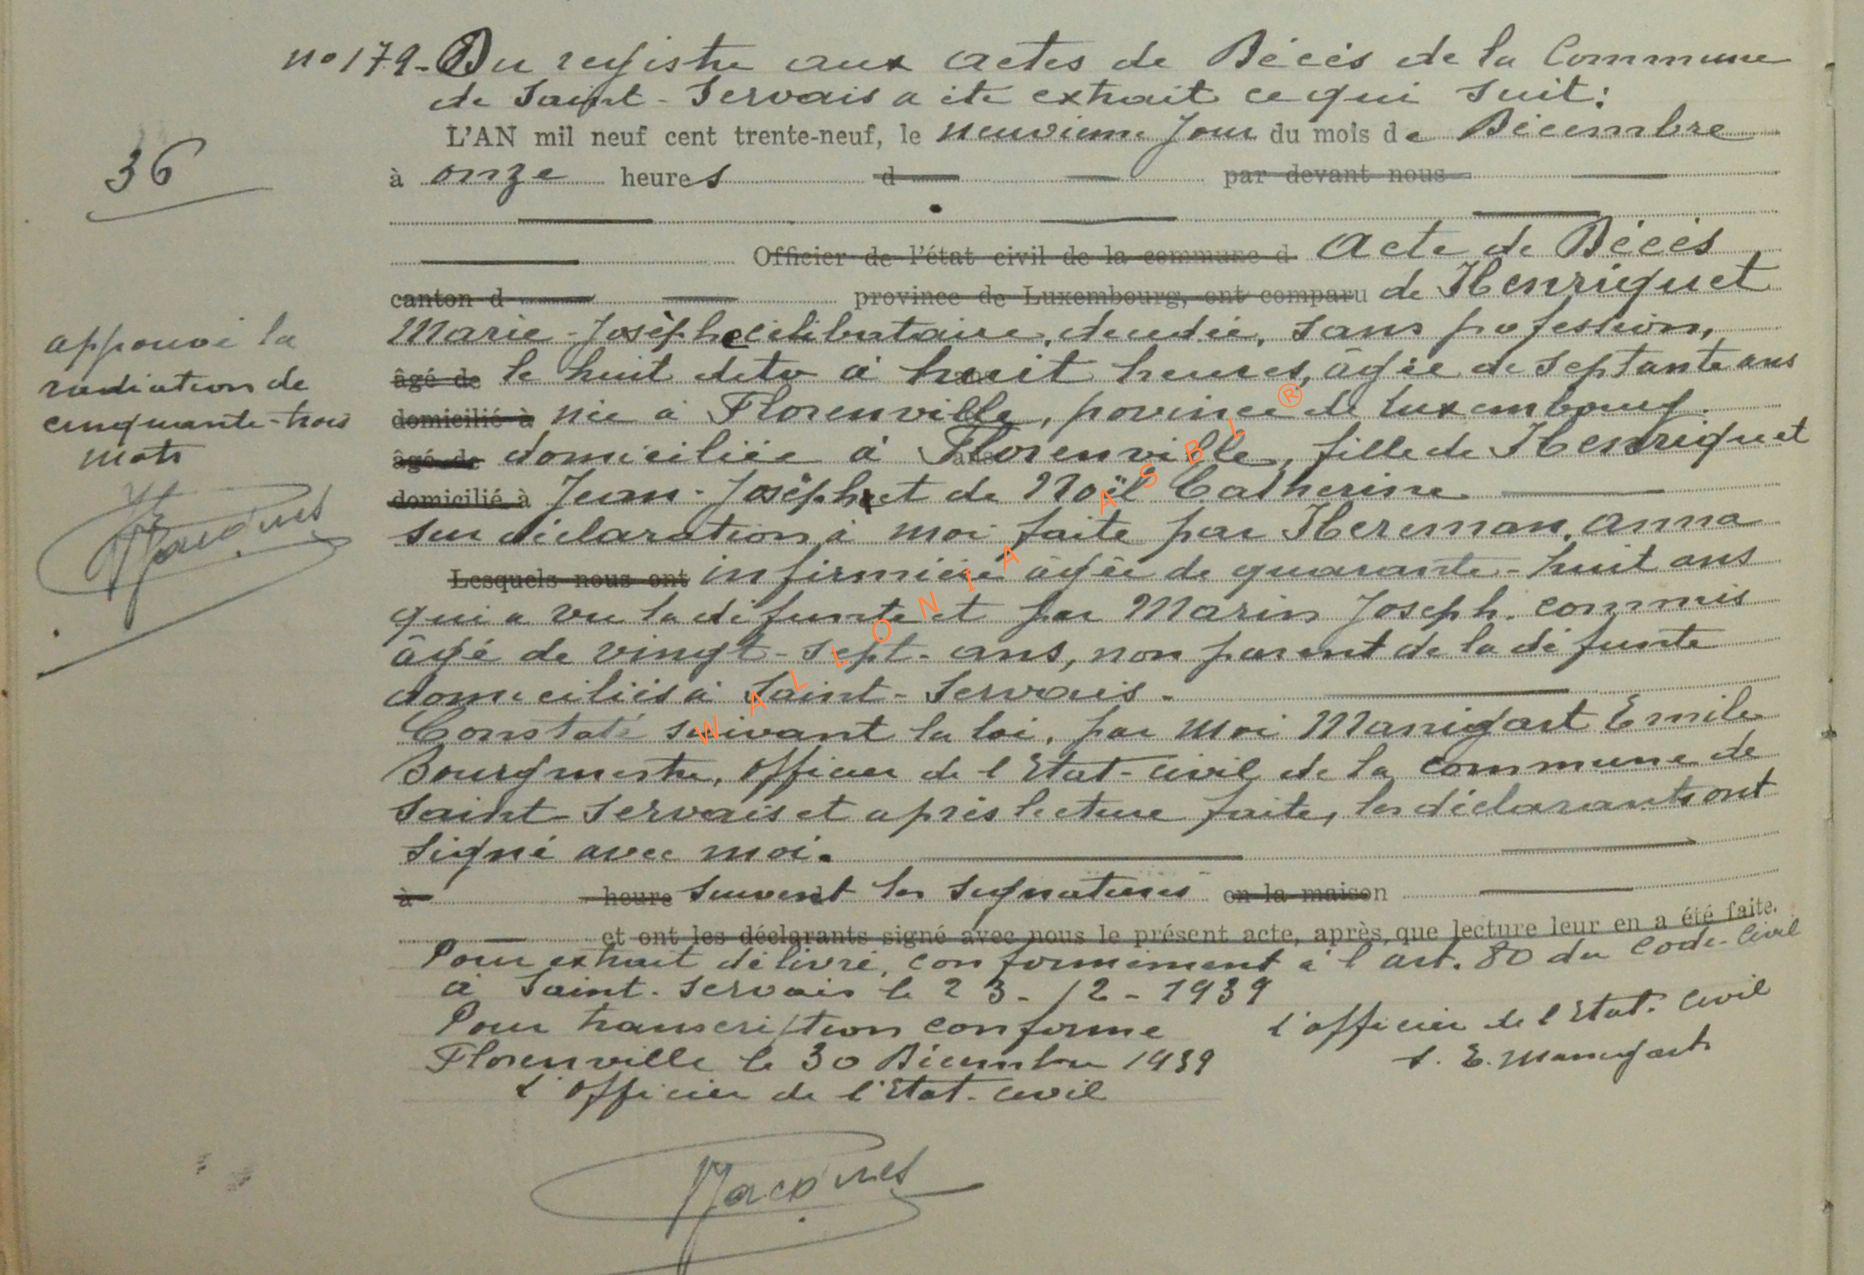 n° 179 - Du registre aux actes de Décès de la Commune
de Saint-Servais a été extrait ce qui suit:
36
L'AN mil neuf cent trente-neuf, le neuvième jour du mois de Décembre
à onze heures d par devant nous
Officier de l'état civil de la commune d Acte de Décès
canton d province de Luxembourg, ont comparu de Henriquet
Marie-Josèphe célibataire, décédée, sans profession,
âgé de le huit dito à huit heures, âgée de septante ans
domicilié à née à Florenville, province de Luxembourg.
âgé de domiciliée à Florenville, fille de Henriquet
domicilié à Jean-Joseph et de Noël Catherine
sur déclaration à moi faite par Herman, Anna
Lesquels nous ont infirmière âgée de quarante-huit ans
qui a vu la défunte et par Marin Joseph. commis
âgé de vingt-sept-ans, non parent de la défunte
domiciliés à Saint-Servais.
Constaté suivant la loi, par moi Manigart Emile
Bourgmestre, officier de l'Etat-Civil de la commune de
Saint-Servais et après lecture faite, les déclarants ont
signé avec moi.
à heure suivent les signatures en la maison
et ont les déclarants signé avec nous le présent acte, après que lecture leur en a été faite.
Pour extrait délivré, conformément à l'art. 80 du Code-Civil
à Saint-Servais le 23-12-1939
Pour transcription conforme l'officier de l'Etat-Civil
Florenville le 30 Décembre 1939 s. E. Manigart
L'officier de l'Etat-Civil
Jacques
approuvé la
radiation de
cinquante-trois
mots
Jacques
WALLONIA ASBL ®